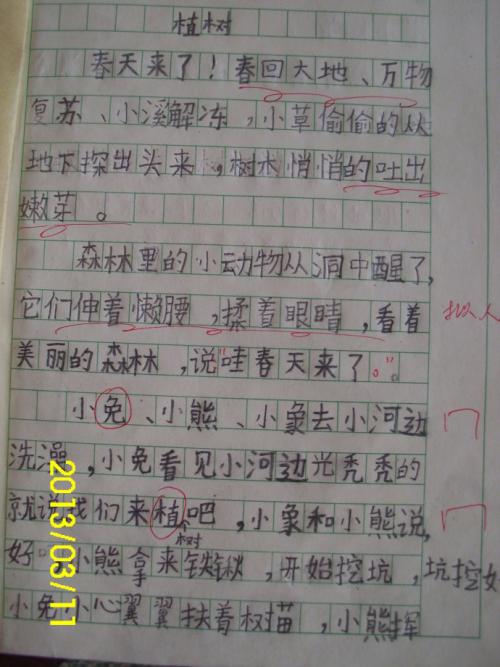 植树
春天来了！春回大地、万物
复苏、小溪解冻，小草偷偷的从
地下探出头来，树木悄悄的吐出
嫩芽。
森林里的小动物从洞中醒了，
它们伸着懒腰，揉着眼睛，看着
拟人
美丽的森林，说“哇春天来了。”
小免、小熊、小象去小河边
洗澡，小免看见小河边光秃秃的
就说我们来植吧，小象和小熊说，
树
好 小熊拿来铁锹，开始挖坑，坑挖好
小免小心翼翼扶着树苗，小熊挥
2013/03/11